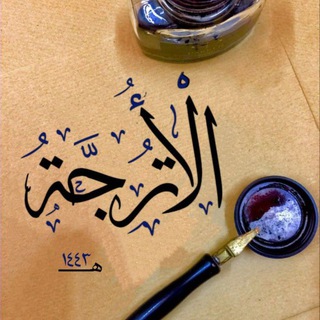 الْأُتْرُجَّةُ
١٤٤٣هـ